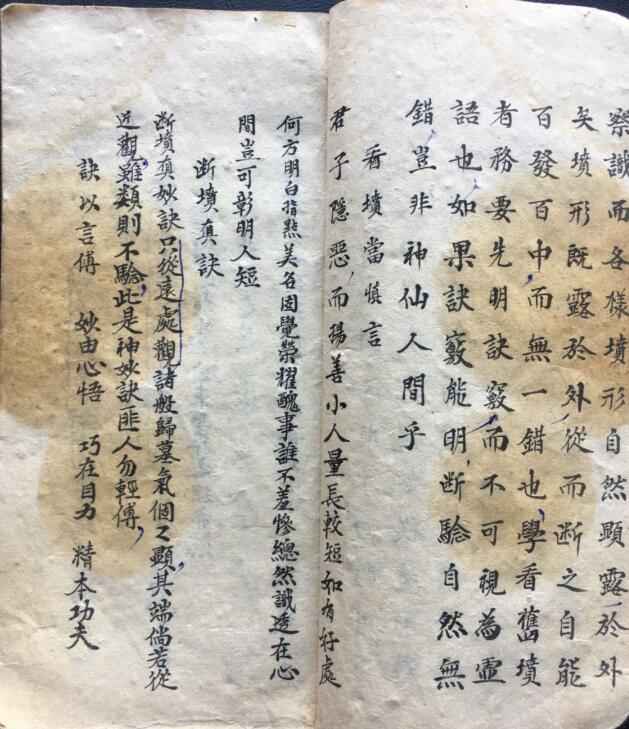 察識而各樣墳形自然顯露於外
矣墳形既露於外從而断之自能
百發百中而無一錯也學看舊墳
者務要先明訣竅而不可視為虛
語也如果訣竅能明断驗自然無
錯豈非神仙人間乎
看墳當慎言
君子隱惡而揚善小人量長較短如有好處
何方明白指點美名固覺榮耀醜事誰不羞慘總然識透在心
間豈可彰明人短
断墳真訣
断墳真妙訣只從遠處觀諸般歸墓氣個々顯其端倘若從
近觀雖類則不驗此是神妙訣匪人勿輕傳
訣以言傳 妙由心悟 巧在目力 精本功夫